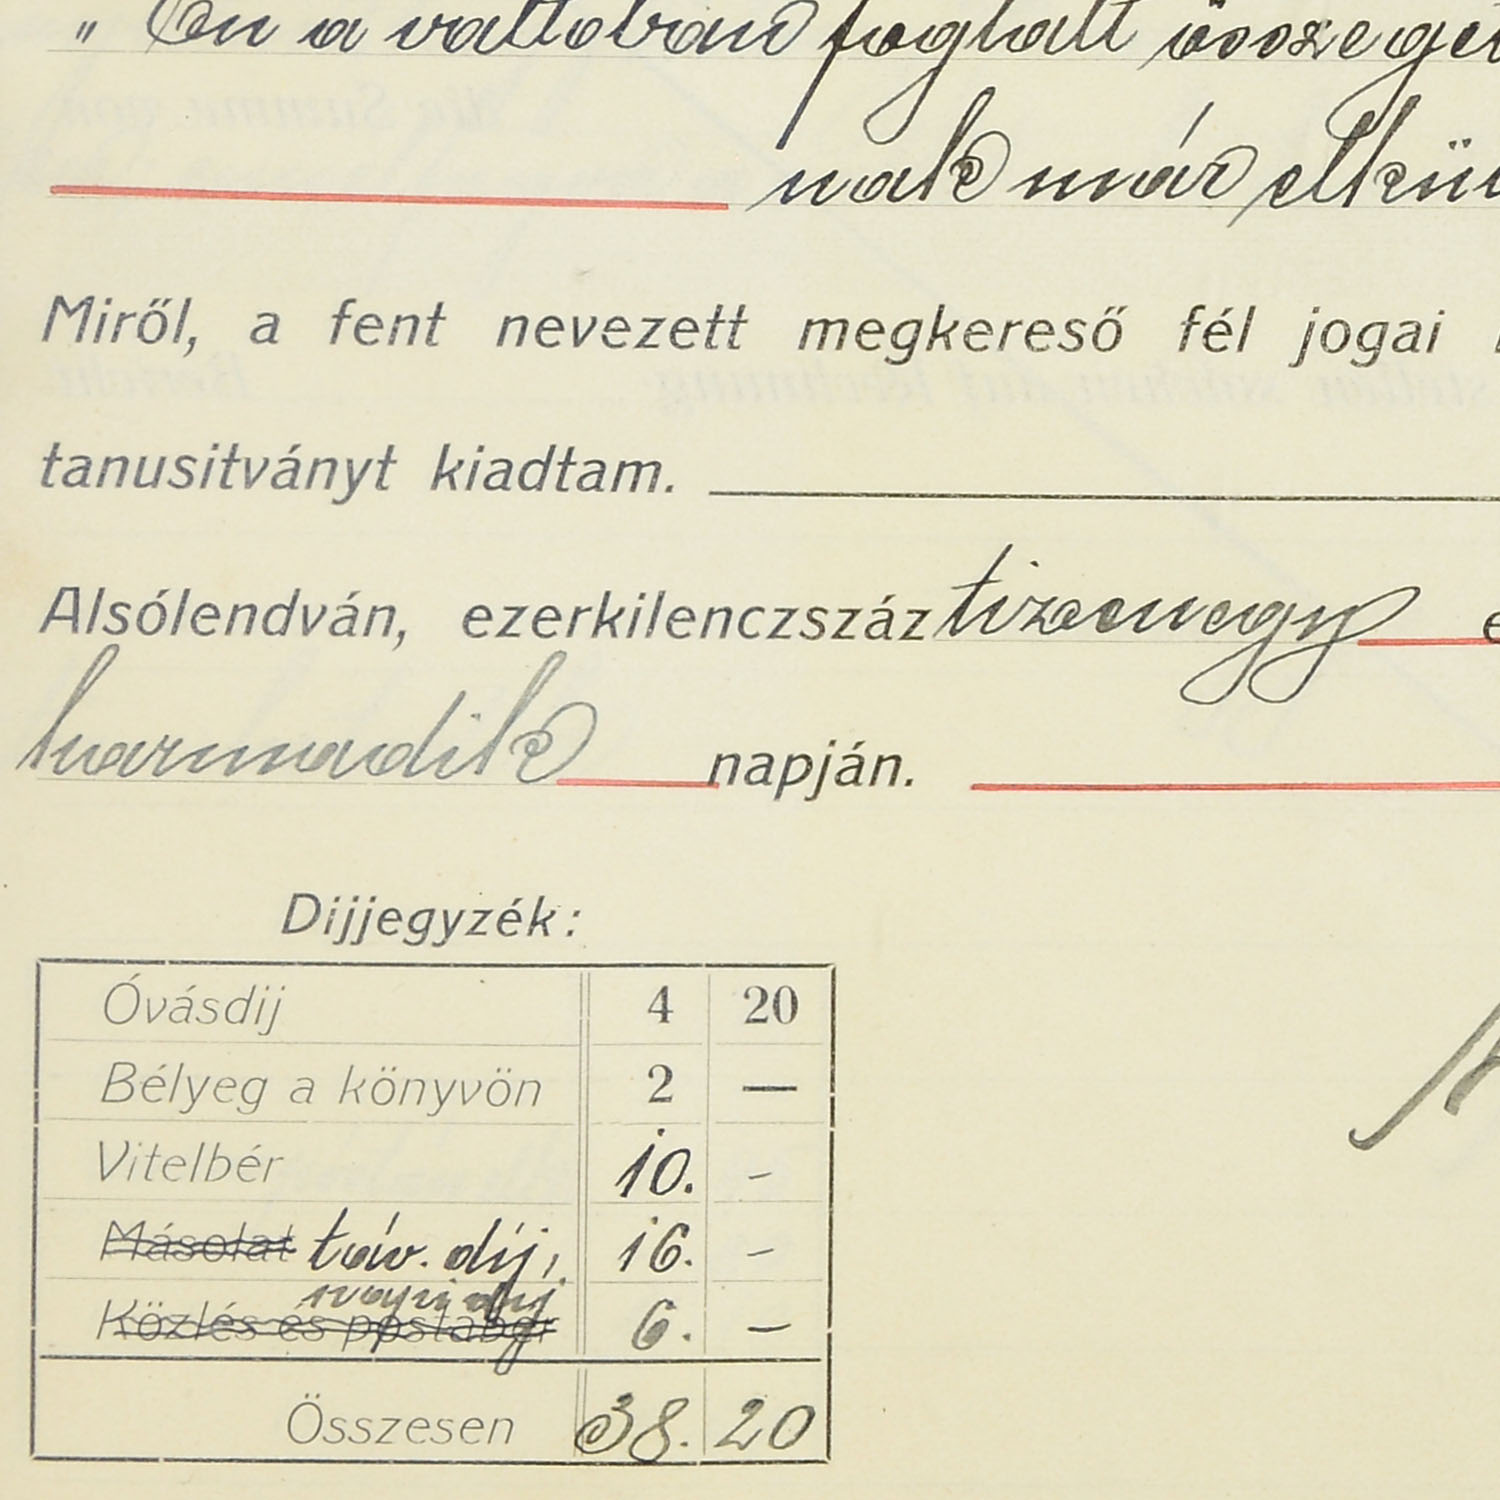 „ Én a váltóban foglalt összeget
nak már elkü
Miről, a fent nevezett megkereső fél jogai
tanusitványt kiadtam.
Alsólendván, ezerkilenczszáz tizenegy e
harmadik napján.
Dijjegyzék:
Óvásdij 4 20
Bélyeg a könyvön 2 —
Vitelbér 10. -
Másolat táv. díj, 16. -
napi díj
Közlés és postabér 6. —
Összesen 38. 20